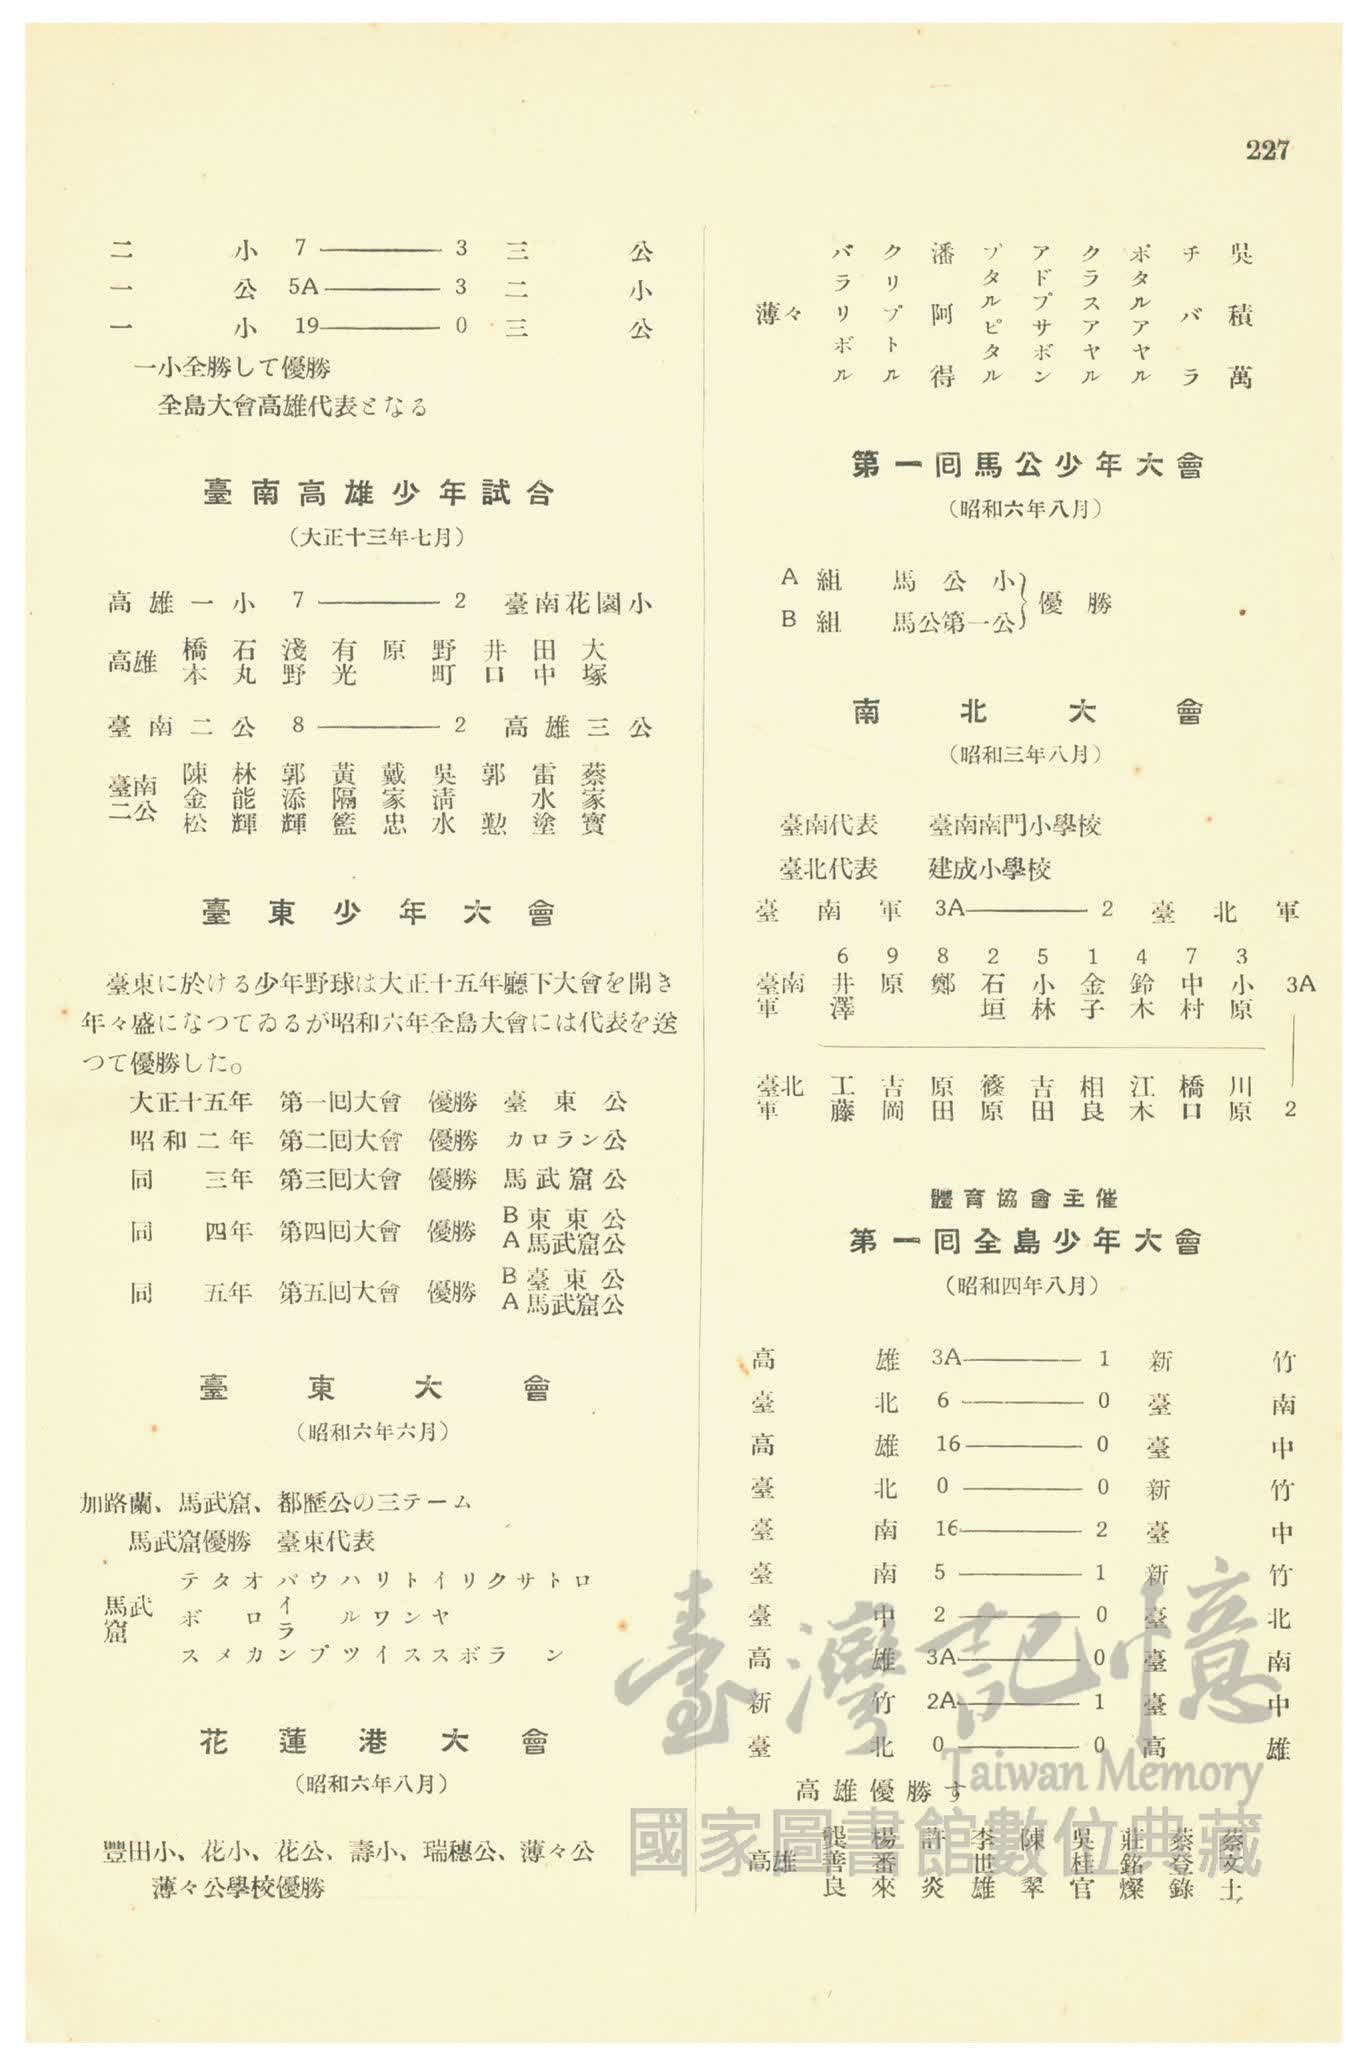 227
二小 7 ——— 3 三公
一公 5A ——— 3 二小
一小 19 ——— 0 三公
一小全勝して優勝
全島大會高雄代表となる
臺南高雄少年試合
（大正十三年七月）
高雄一小 7 ——— 2 臺南花園小
高雄 橋本 石丸 淺野 有光 原 野町 井口 田中 大塚
臺南二公 8 ——— 2 高雄三公
臺南二公 陳金松 林能輝 郭添輝 黃隔籃 戴家忠 吳淸水 郭懃 雷水塗 蔡家寶
臺東少年大會
臺東に於ける少年野球は大正十五年廳下大會を開き
年々盛になつてゐるが昭和六年全島大會には代表を送
つて優勝した。
大正十五年 第一回大會 優勝 臺東公
昭和二年 第二回大會 優勝 カロラン公
同 三年 第三回大會 優勝 馬武窟公
同 四年 第四回大會 優勝 B東東公 A馬武窟公
同 五年 第五回大會 優勝 B臺東公 A馬武窟公
臺東大會
（昭和六年六月）
加路蘭、馬武窟、都歷公の三テーム
馬武窟優勝 臺東代表
馬武窟 テボス タメ オロカ バイラン ウプ ハルツ リワイ トンス イヤス リボ クラ サ トン ロ
花蓮港大會
（昭和六年八月）
豐田小、花小、花公、壽小、瑞穗公、薄々公
薄々公學校優勝
薄々 バラリボル クリプトル 潘阿得 プタルピタル アドプサボン クラスアヤル ボタルアヤル チバラ 吳積萬
第一回馬公少年大會
（昭和六年八月）
A組 馬公小
B組 馬公第一公 }優勝
南北大會
（昭和三年八月）
臺南代表 臺南南門小學校
臺北代表 建成小學校
臺南軍 3A ——— 2 臺北軍
6 9 8 2 5 1 4 7 3
臺南軍 井澤 原 鄭 石垣 小林 金子 鈴木 中村 小原 3A
臺北軍 工藤 吉岡 原田 篠原 吉田 相良 江木 橋口 川原 2
體育協會主催
第一回全島少年大會
（昭和四年八月）
高雄 3A ——— 1 新竹
臺北 6 ——— 0 臺南
高雄 16 ——— 0 臺中
臺北 0 ——— 0 新竹
臺南 16 ——— 2 臺中
臺南 5 ——— 1 新竹
臺中 2 ——— 0 臺北
高雄 3A ——— 0 臺南
新竹 2A ——— 1 臺中
臺北 0 ——— 0 高雄
高雄優勝す
高雄 龔善良 楊番來 許炎 李世雄 陳翠 吳桂官 莊銘燦 蔡登錄 蔡文土
臺灣記憶
Taiwan Memory
國家圖書館數位典藏